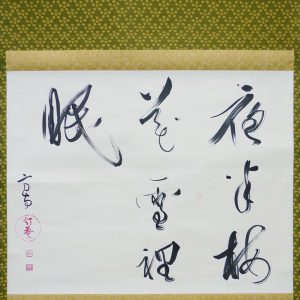 夜半梅
花雪裡
眠